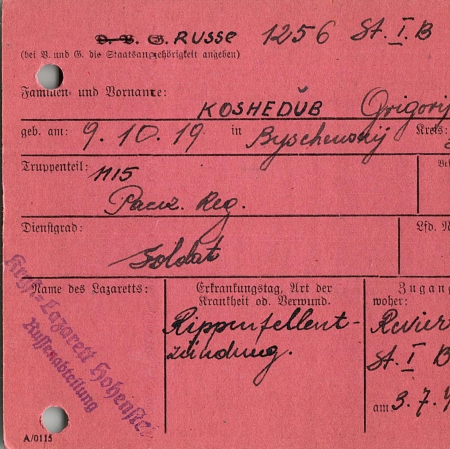 D. B. G. RUSSE 1256 St. I. B
(bei B. und G. die Staatsangehörigkeit angeben)
Familien- und Vorname:
KOSHEDŬB Grigorij
geb. am: 9.10.19 in Byschenskij Kreis:
Truppenteil: 1115
Panz. Reg.
Dienstgrad: Soldat Lfd. N
Krgf.-Lazarett Hohenste
Russenabteilung
Name des Lazaretts:
Erkrankungstag, Art der
Krankheit od. Verwund.
Rippenfellent-
zündung.
Zugang
woher:
Revier
St. I B
am 3.7.
A/0115